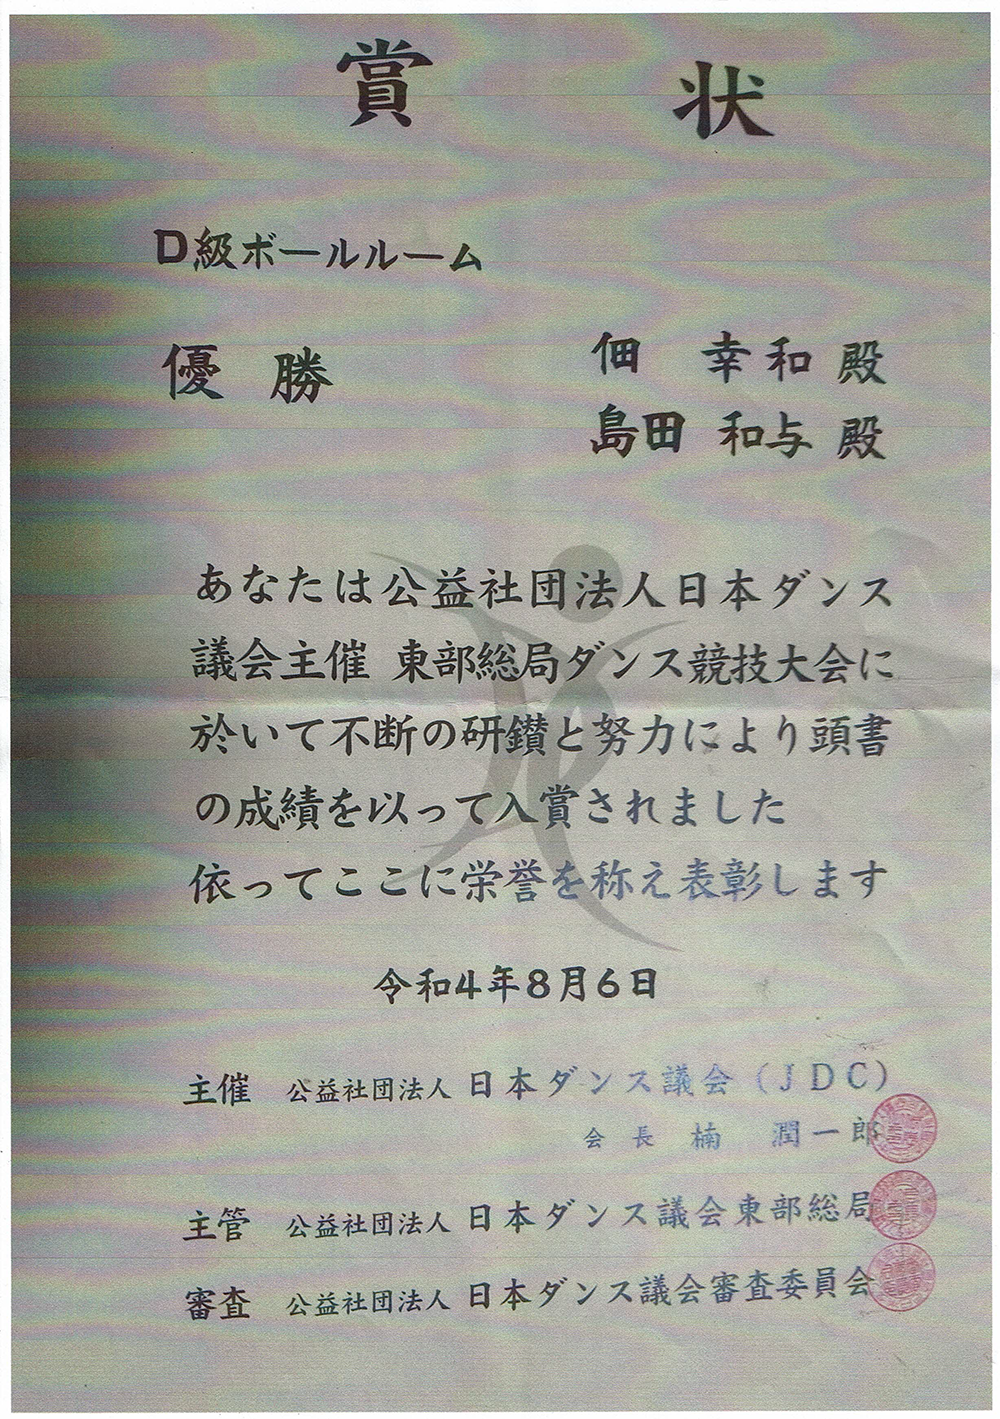 賞状
D級ボールルーム
優勝
佃 幸和 殿
島田 和与 殿
あなたは公益社団法人日本ダンス
議会主催 東部総局ダンス競技大会に
於いて不断の研鑚と努力により頭書
の成績を以って入賞されました
依ってここに栄誉を称え表彰します
令和4年8月6日
主催 公益社団法人 日本ダンス議会(JDC)
会長 楠 潤一郎
主管 公益社団法人 日本ダンス議会東部総局
審査 公益社団法人 日本ダンス議会審査委員会